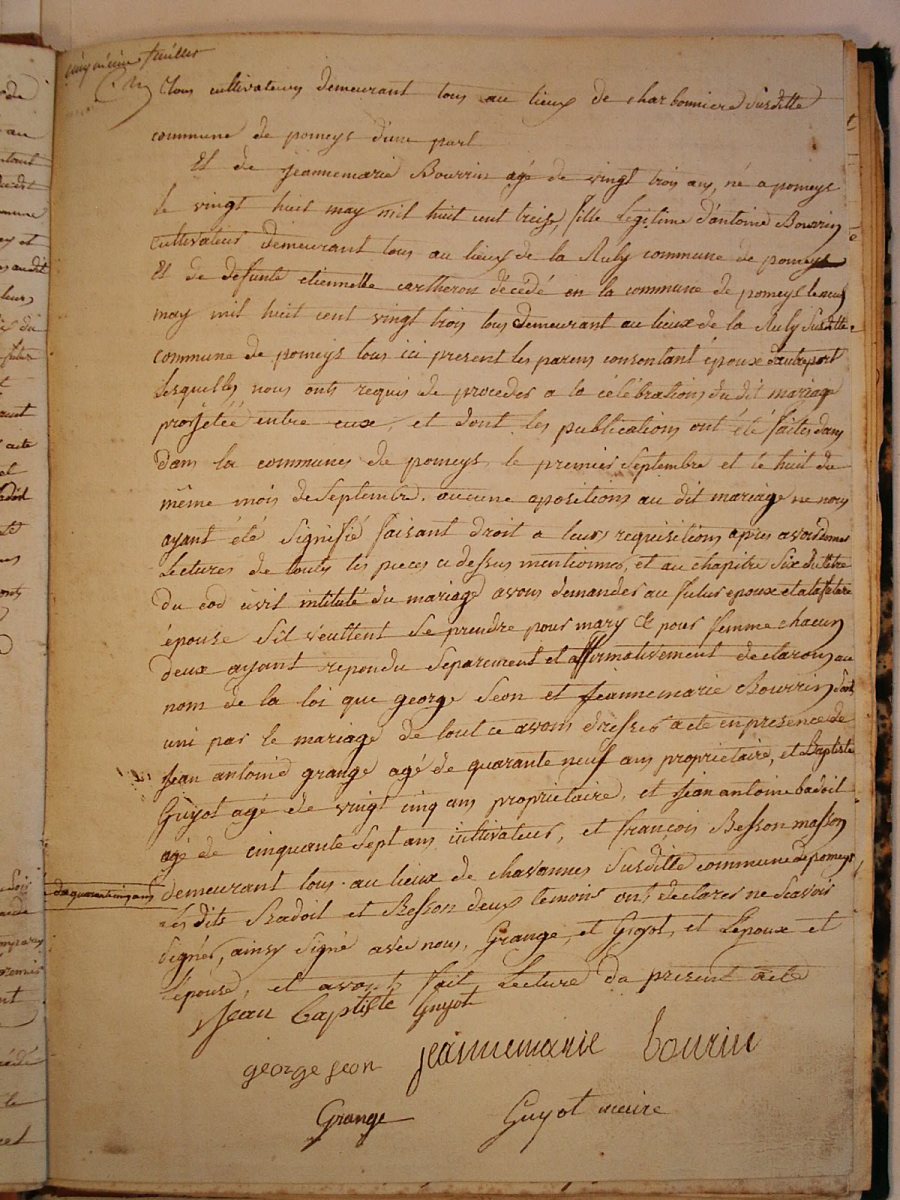 cinquième feuillet
Tous cultivateurs demeurant tous au lieux de charbonniere susditte
commune de pomeys dune part
Et de jeannemarie Bourrin agé de vingt trois ans, né a pomeys
le vingt huit may mil huit cent treize, fille legitime d'antoine Bourrin
cultivateur demeurant tous au lieux de la Ruly commune de pomeys
Et de defunte etiennette cartheron décédé en la commune de pomeys le neuf
may mil huit cent vingt trois tous demeurant au lieux de la Ruly susditte
commune de pomeys tous ici present les parens consentant époux d'autre part
Lesquelles nous onts requis de proceder a la celébrations du dit mariage
projetée entre eux, et dont les publications ont été faites dans
dans la communes de pomeys, le premier septembre et le huit du
même mois de septembre. aucune apositions au dit mariage ne nous
ayant été signifié faisant droit a leurs requisitions apres avoir donner
Lectures de toutes les pieces ci dessus mentionnes, et au chapitre six du titre
du cod civil intitulé du mariage avons demander au futur epoux et a la future
épouse sil veullent se prendre pour mary & pour femme chacun
deux ayant repondu separement et affirmativement declarons au
nom de la loi que george Seon et Jeannemarie Bourrin sont
uni par le mariage de tout ce avons dresser acte en presence de
Jean antoine grange agé de quarante neuf ans proprietaire, et Baptiste
Guyot agé de vingt cinq ans proprietaire, et Jean antoine badoil
agé de cinquante sept ans cultivateur, et françois Besson masson
de quarente cinq ans
demeurant tous au lieux de chavannes susditte commune de pomeys
Les dits Badoil et Besson deux temoins onts declarer ne scavoir
signer, ainsy signé avec nous, Grange, et Gyot, et L'epoux et
épouse, et avont fait Lecture du present acte
Jean baptiste Guyot
george seon jeannemarie bourin
Grange Guyot maire